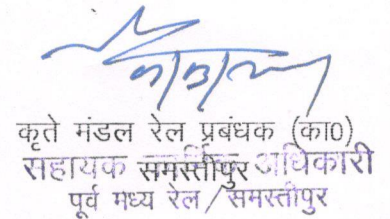 कृते मंडल रेल प्रबंधक (का0)
सहायक समस्तीपुर अधिकारी
पूर्व मध्य रेल/समस्तीपुर